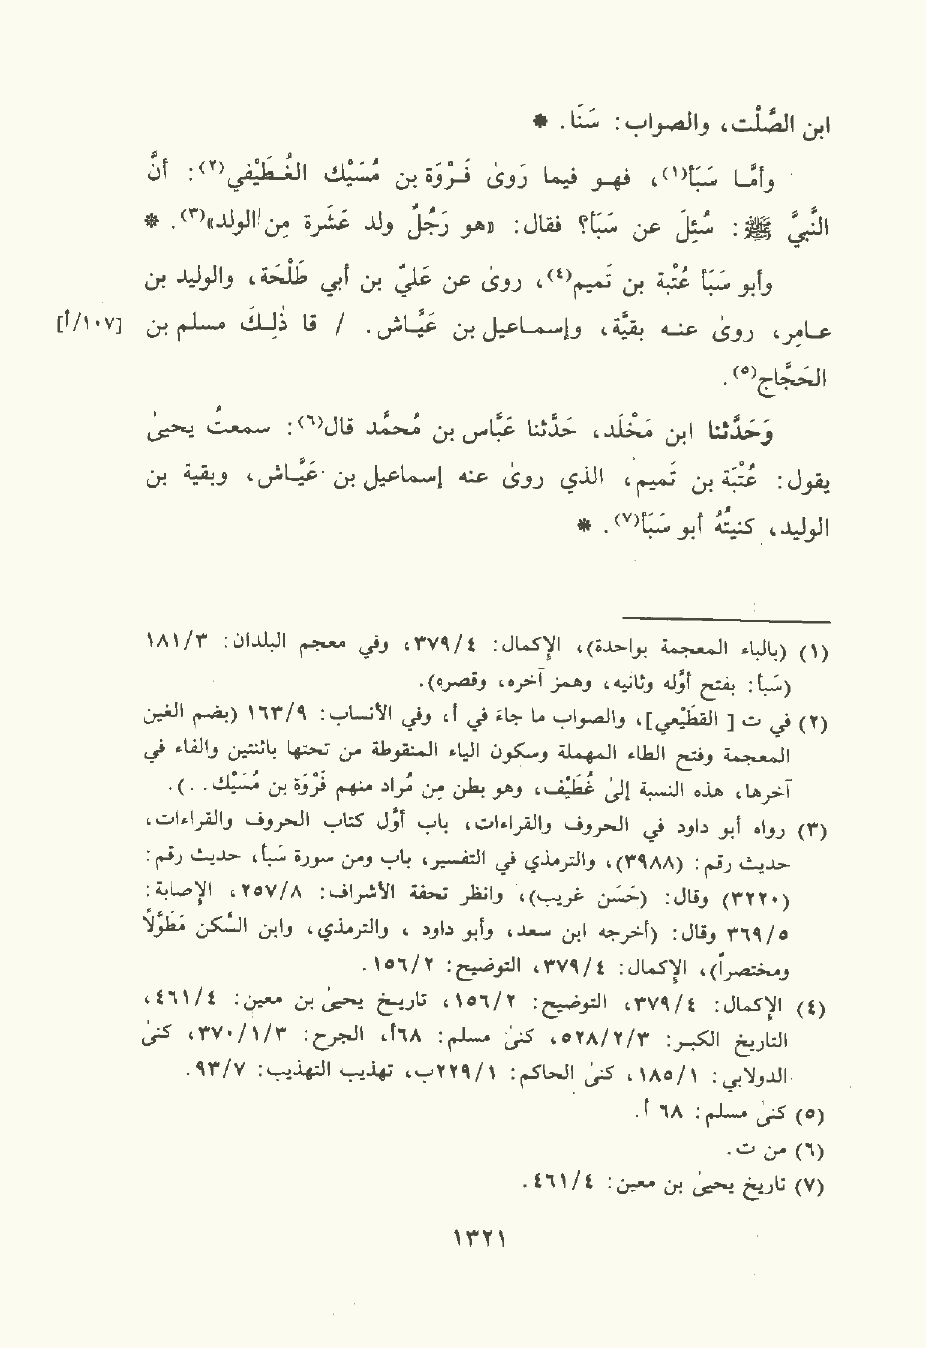 ابن الصَّلْت، والصواب: سَنَا. *
وأمَّا سَبَأ(١)، فهو فيما رَوىٰ فَرْوَة بن مُسَيْك الغُطَيْفي(٢): أنَّ
النَّبيَّ ﷺ: سُئِلَ عن سَبَأ؟ فقال: «هو رَجُلٌ ولد عَشَرة مِن الولد»(٣). *
وأبو سَبَأ عُتْبة بن تَميم(٤)، روىٰ عن عَليّ بن أبي طَلْحَة، والوليد بن
عامِر، روىٰ عنه بقيَّة، وإسماعيل بن عَيَّاش. / قا ذٰلِكَ مسلم بن [١٠٧/أ]
الحَجَّاج(٥).
وَحَدَّثنا ابن مَخْلَد، حَدَّثنا عَبَّاس بن مُحمَّد قال(٦): سمعتُ يحيىٰ
يقول: عُتْبَة بن تَميم، الذي روىٰ عنه إسماعيل بن عَيَّاش، وبقية بن
الوليد، كنيتُهُ أبو سَبَأ(٧). *
(١) (بالباء المعجمة بواحدة)، الإكمال: ٣٧٩/٤، وفي معجم البلدان: ١٨١/٣
(سَبأ: بفتح أوَّله وثانيه، وهمز آخره، وقصره).
(٢) في ت [ القطَيْعي]، والصواب ما جاء في أ، وفي الأنساب: ١٦٣/٩ (بضم الغين
المعجمة وفتح الطاء المهملة وسكون الياء المنقوطة من تحتها بنائنين والفاء في
آخرها، هذه النسبة إلىٰ غُطَيْف، وهو بطن مِن مُراد منهم فَرْوَة بن مُسَيْك. . .).
(٣) رواه أبو داود في الحروف والقراءات، باب أوَّل كتاب الحروف والقراءات،
حديث رقم: (٣٩٨٨)، والترمذي في التفسير، باب ومن سورة سَبأ، حديث رقم:
(٣٢٢٠) وقال: (حَسَن غريب)، وانظر تحفة الأشراف: ٢٥٧/٨، الإصابة:
٣٦٩/٥ وقال: (أخرجه ابن سعد، وأبو داود ، والترمذي، وابن السَّكن مَطَوَّلاً
ومختصراً)، الإكمال: ٣٧٩/٤، التوضيح: ١٥٦/٢.
(٤) الإكمال: ٣٧٩/٤، التوضيح: ١٥٦/٢، تاريخ يحيىٰ بن معين: ٤٦١/٤،
التاريخ الكبير: ٥٢٨/٢/٣، كنىٰ مسلم: ٦٨أ، الجرح: ٣٧٠/١/٣، كنىٰ
الدولابي: ١٨٥/١، كنىٰ الحاكم: ٢٢٩/١ب، تهذيب التهذيب: ٩٣/٧.
(٥) كنىٰ مسلم: ٦٨ أ.
(٦) من ت.
(٧) تاريخ يحيىٰ بن معين: ٤٦١/٤.
١٣٢١